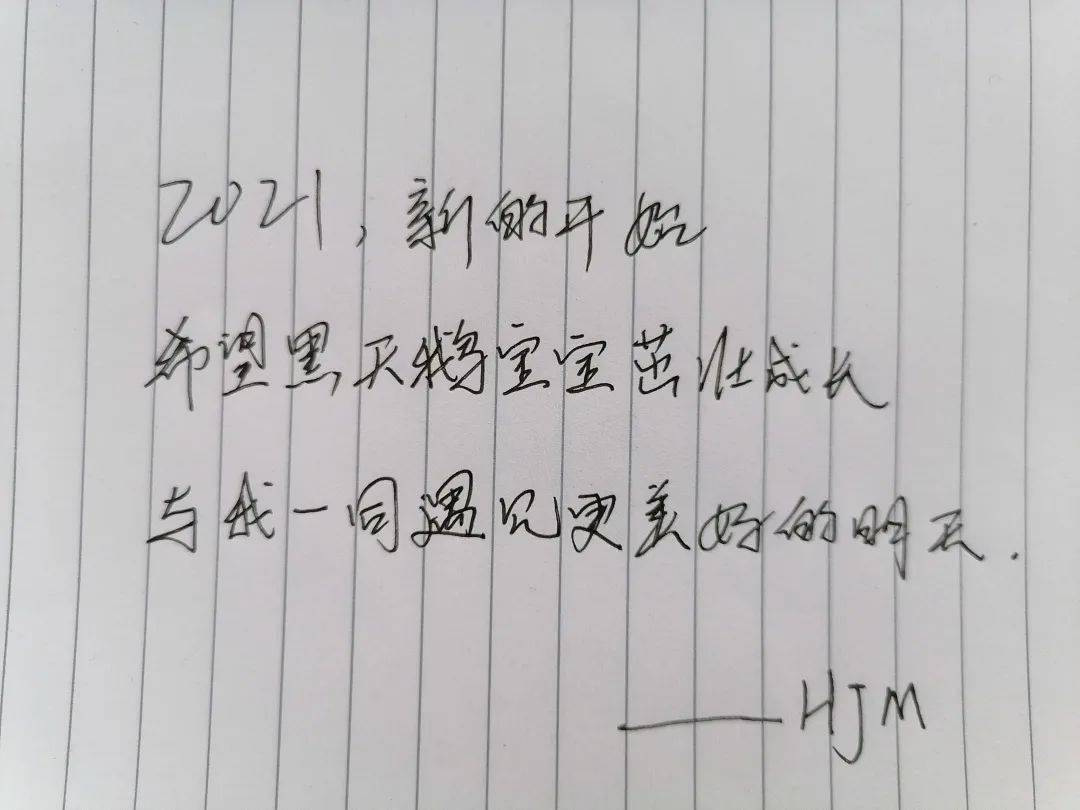 2021,新的开始
希望黑天鹅宝宝茁壮成长
与我一同遇见更美好的明天.
——HJM